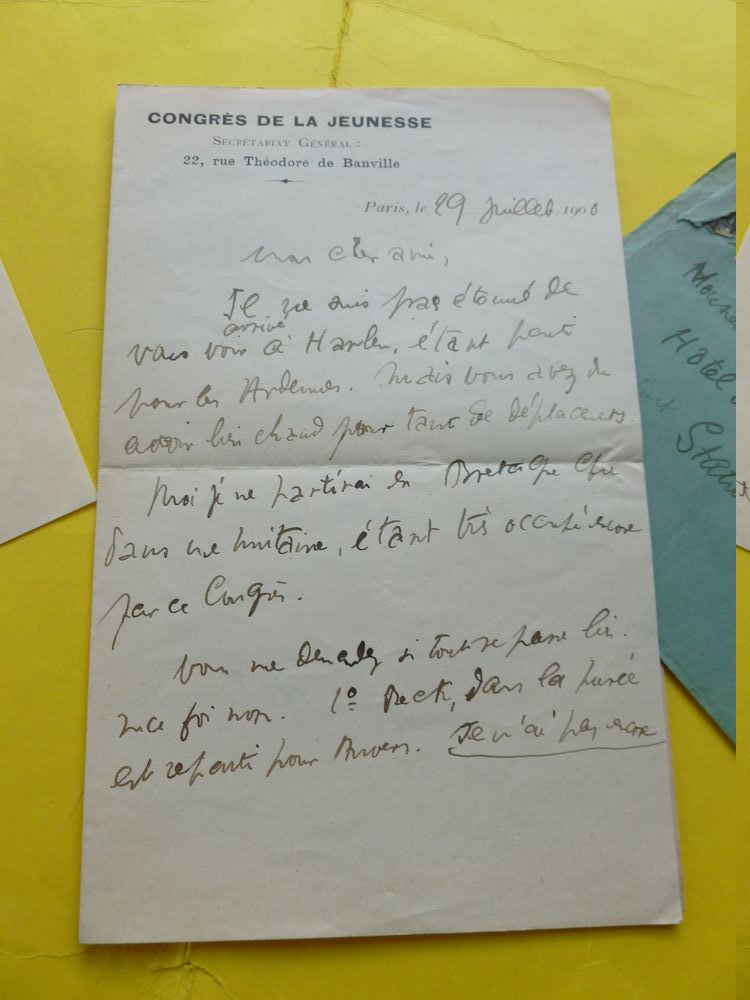 CONGRÈS DE LA JEUNESSE
SECRÉTARIAT GÉNÉRAL :
22, rue Théodore de Banville
Paris, le 29 Juillet 1900
Mon cher ami,
Je ne suis pas étonné de
arrivé
vous voir à Harlem, étant parti
pour les Ardennes. Mais vous avez du
avoir bien chaud pour tant de déplacements.
Moi je ne partirai en Bretagne que
dans une huitaine, étant très occupé encore
par ce Congrès.
Vous me demandez si tout se passe bien.
foi non. 1º Beck, dans la purée
est reparti pour Anvers. Je n'ai pas encore
Hôtel